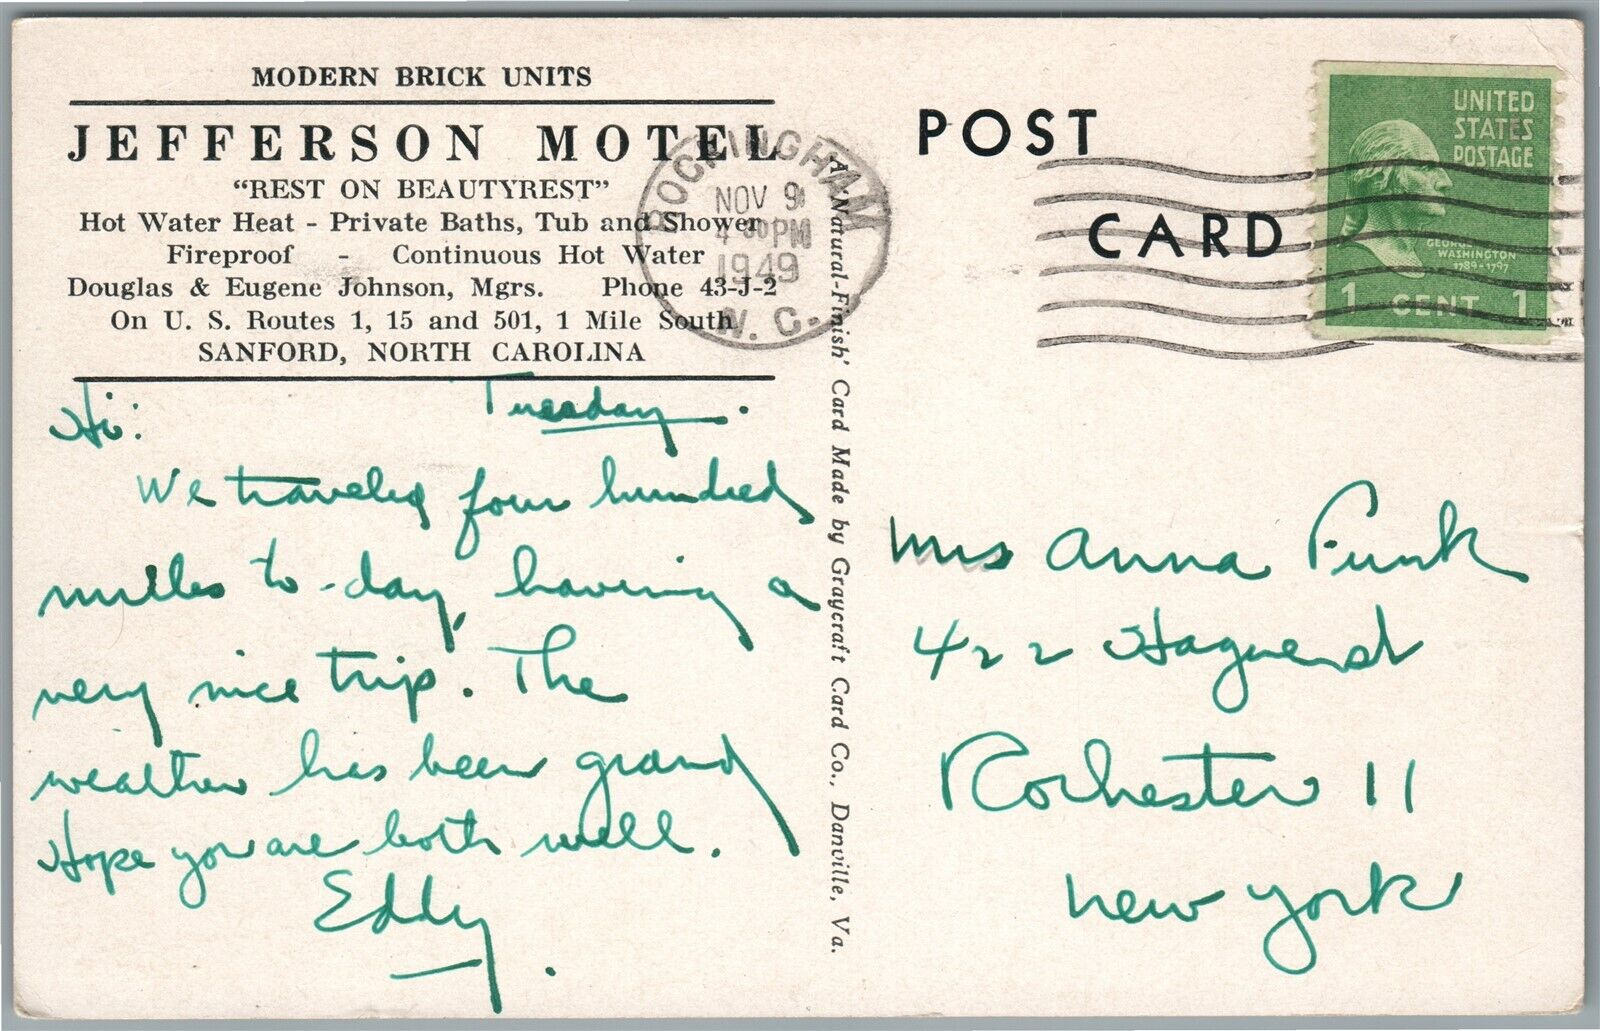 MODERN BRICK UNITS
JEFFERSON MOTEL
"REST ON BEAUTYREST"
Hot Water Heat - Private Baths, Tub and Shower
Fireproof - Continuous Hot Water
Douglas & Eugene Johnson, Mgrs. Phone 43-J-2
On U. S. Routes 1, 15 and 501, 1 Mile South
SANFORD, NORTH CAROLINA
Hi: Tuesday.
We traveled four hundred
miles to-day, having a
very nice trip. The
weather has been grand
Hope you are both well.
Eddy.
A 'Natural-Finish' Card Made by Graycraft Card Co., Danville, Va.
POST
CARD
ROCKINGHAM
NOV 9
4 30 PM
1949
N. C.
UNITED
STATES
POSTAGE
GEORGE WASHINGTON
1789-1797
1 CENT 1
Mrs Anna Funk
422 Hague st
Rochester 11
New York